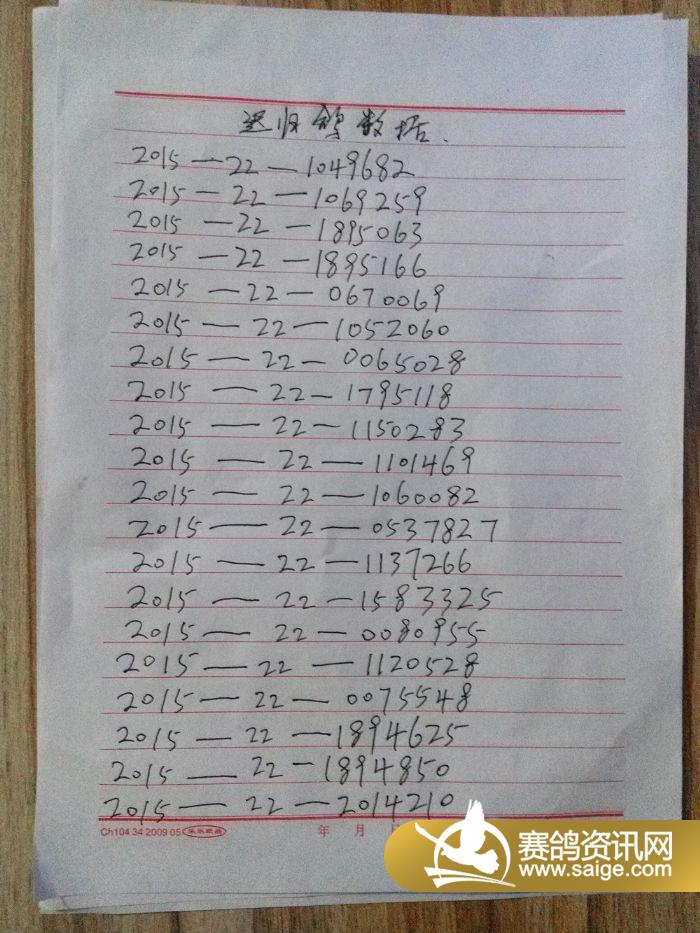 迟归鸽数据.
2015—22—1049682
2015—22—1069259
2015—22—1895063
2015—22—1895166
2015—22—0670069
2015—22—1052060
2015—22—0065028
2015—22—1795118
2015—22—1150283
2015—22—1101469
2015—22—1060082
2015—22—0537827
2015—22—1137266
2015—22—1583325
2015—22—0080955
2015—22—1120528
2015—22—0075548
2015—22—1894625
2015—22—1894850
2015—22—2014210
Ch104 34 2009 05
年 月
赛鸽资讯网
www.saige.com